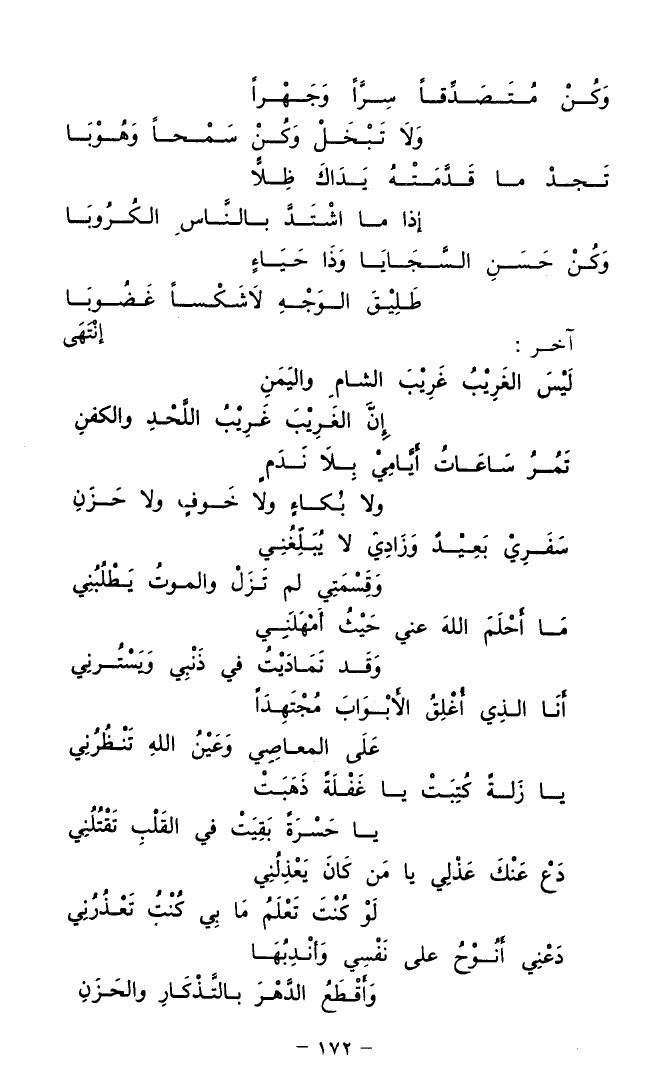 وَكُنْ مُتَصَدِّقاً سِرًّا وَجَهْراً
وَلَا تَبْخَلْ وَكُنْ سَمْحاً وَهُوْبَا
تَجِدْ ما قَدَّمَتْهُ يَدَاكَ ظِلًّا
إذا ما اشْتَدَّ بالنَّاسِ الكُرُوبَا
وَكُنْ حَسَنِ السَّجَايَا وَذَا حَيَاءٍ
طَلِيْقَ الوَجْهِ لَا شَكْساً غَضُوبَا
إنْتَهَى
آخر :
لَيْسَ الغَرِيْبُ غَرِيْبَ الشامِ واليَمَنِ
إِنَّ الغَرِيْبَ غَرِيْبُ اللَّحْدِ والكفنِ
تَمُرُ سَاعَاتُ أَيَّامِيْ بِلَا نَدَمٍ
ولا بُكاءٍ ولا خَوفٍ ولا حَزَنِ
سَفَرِيْ بَعِيْدٌ وَزَادِيَ لا يُبَلِّغُنِي
وَقِسْمَتِي لم تَزَلْ والموتُ يَطْلُبُنِي
مَا أَحْلَمَ اللهَ عني حَيْثُ أَمْهَلَنِي
وَقَد تَمَادَيْتُ في ذَنْبِي وَيَسْتُرنِي
أَنَا الذِي أُغْلِقُ الأَبْوَابَ مُجْتَهِداً
عَلَى المعاصِي وَعَيْنُ اللهِ تَنْظُرُنِي
يا زَلةً كُتِبَتْ يا غَفْلَةً ذَهَبَتْ
يا حَسْرَةً بَقِيَتْ في القَلْبِ تَقْتُلُنِي
دَعْ عَنْكَ عَذْلِي يا مَن كَانَ يَعْذِلُنِي
لَوْ كُنْتَ تَعْلَمُ مَا بِي كُنْتَ تَعْذُرُنِي
دَعْنِي أَنُوْحُ على نَفْسِي وَأَنْدِبُهَا
وَأَقْطَعُ الدَّهْرَ بالتَّذْكَارِ والحَزَنِ
– ١٧٢ –